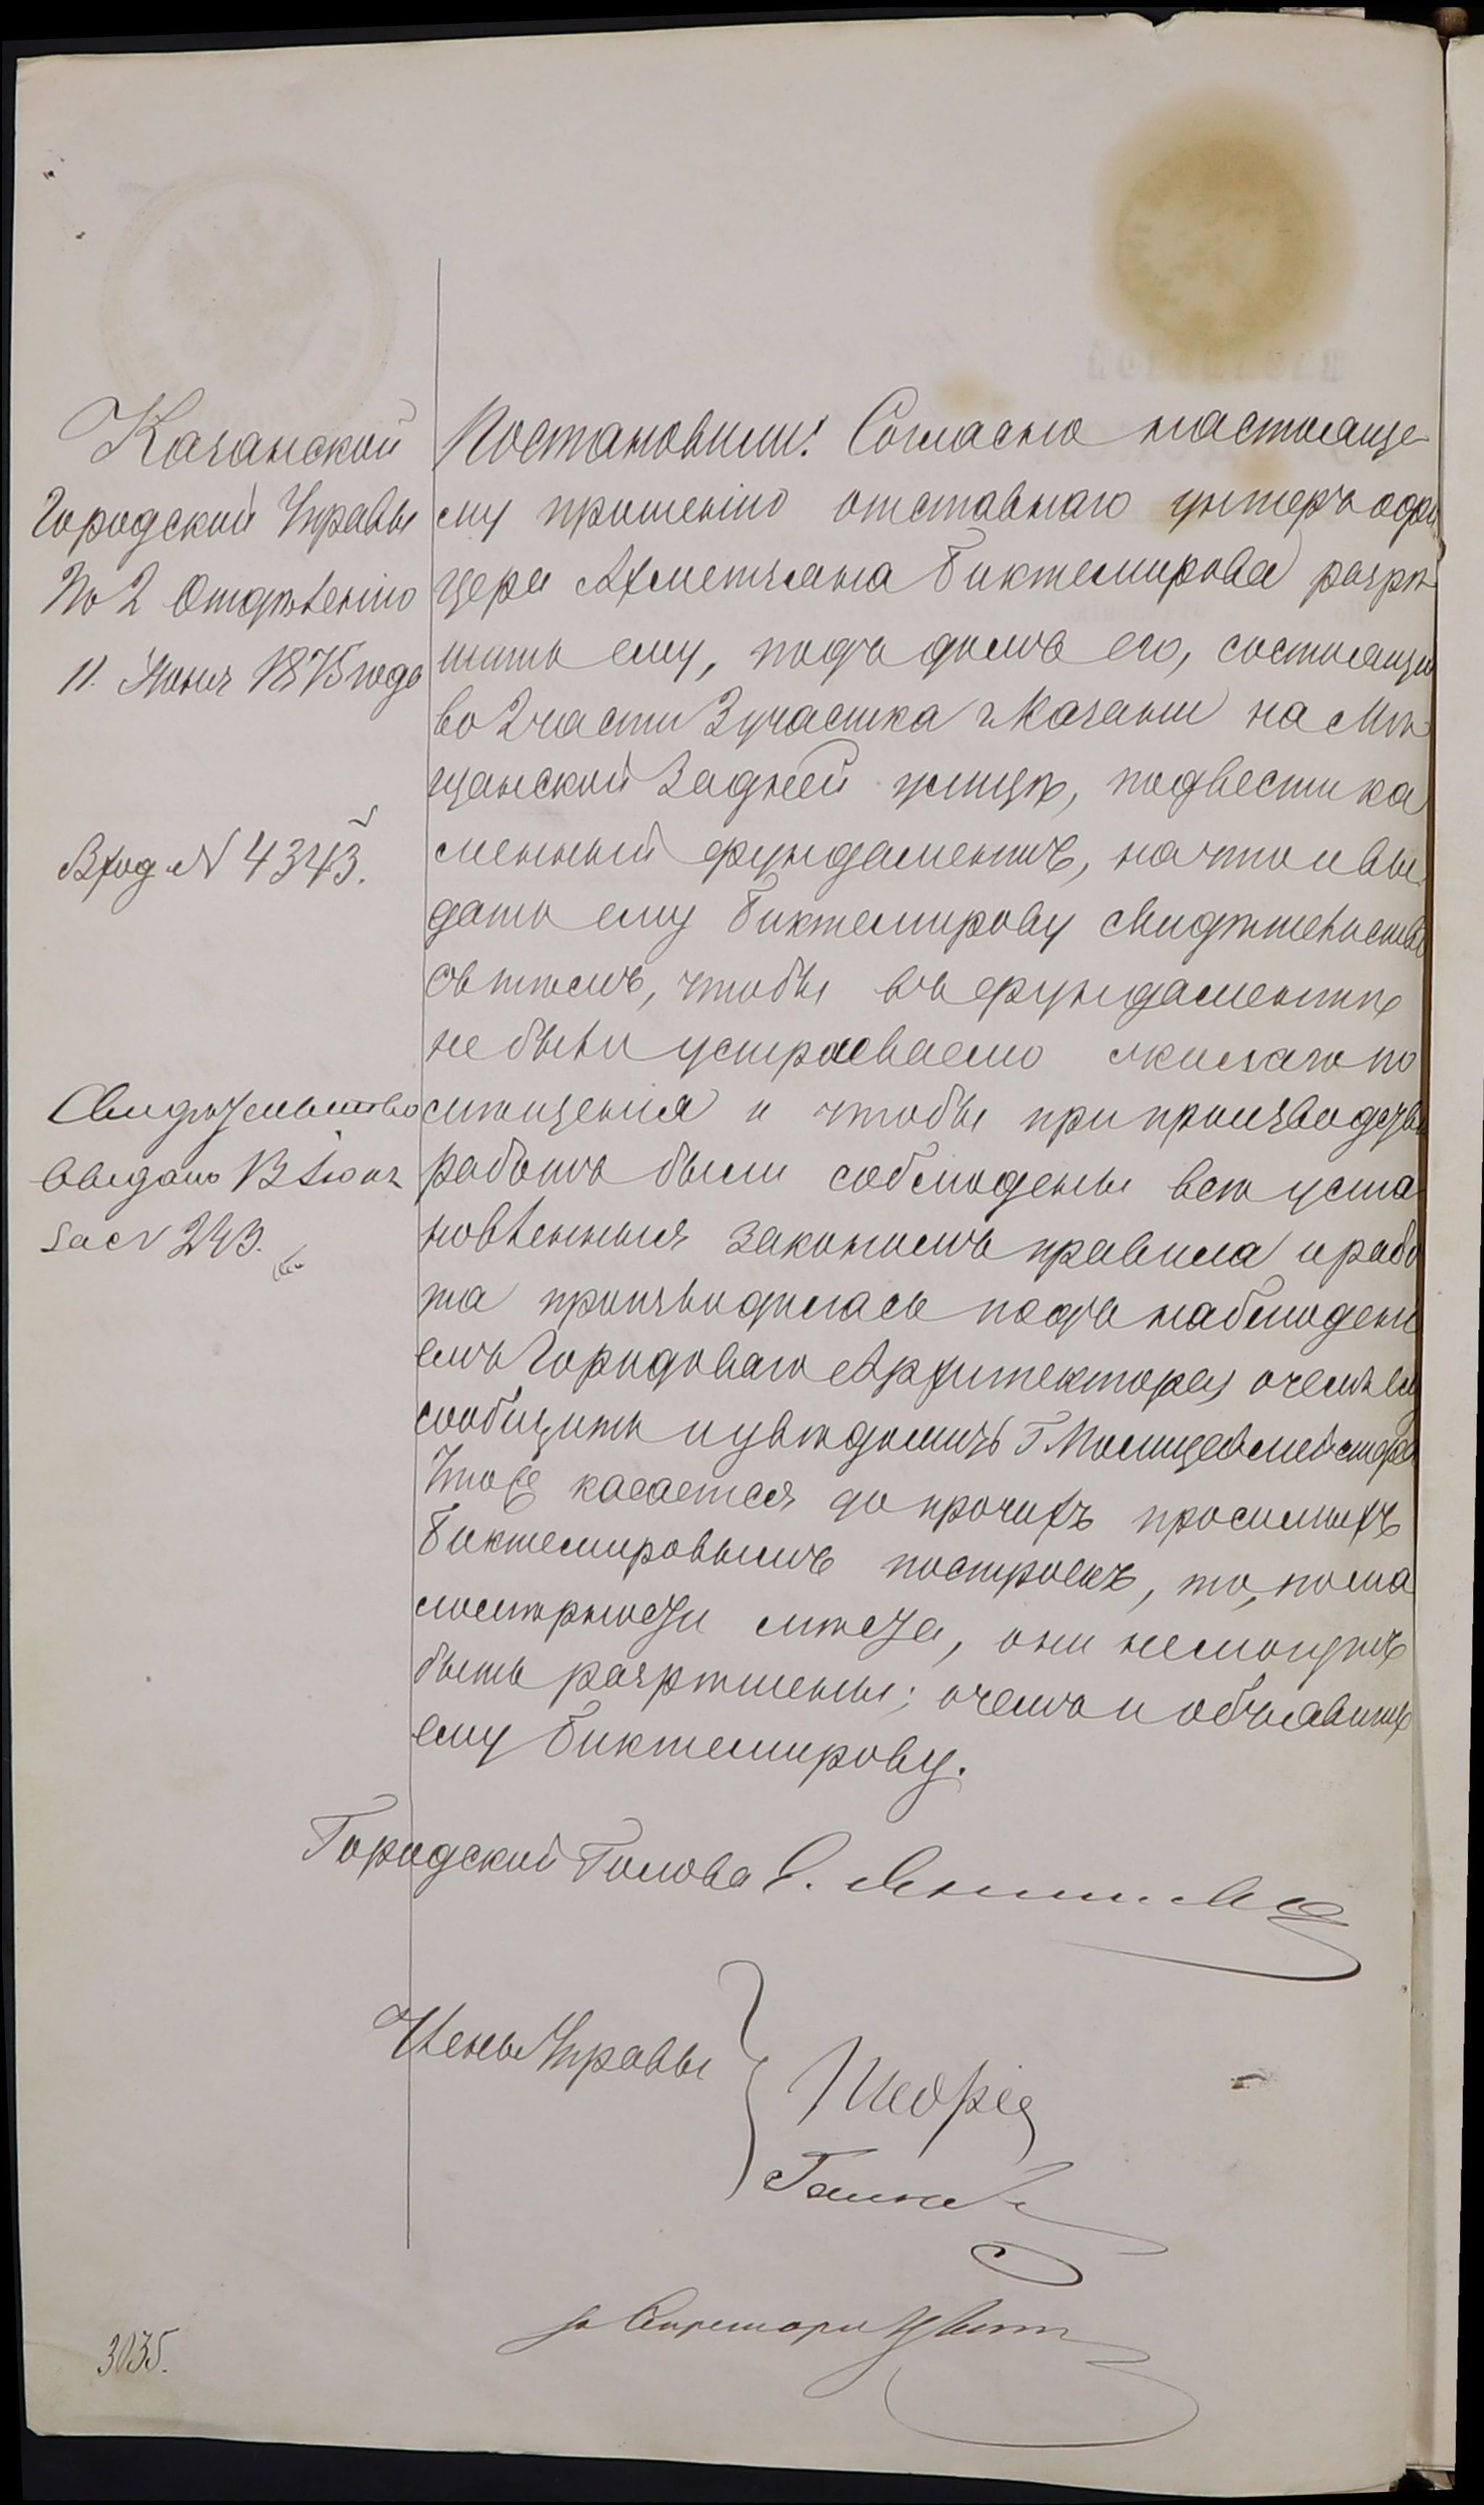 Казанской
Городской Управы
По 2 Отдѣленію
11 Июня 1875 года
Вход. № 4343.
Свидѣтельство
выдано 13 Июня
за № 243.
Постановили: Согласно настояще-
му прошенію отставнаго унтеръ офи
цера Ахметзяна Биктемирова разрѣ
шить ему, подъ домъ его, состоящій
во 2 части 3 участка г. Казани на Мѣ
щанской Задней улицѣ, подвести ка
менный фундаментъ, на что и вы
дать ему Биктемирову свидѣтельство
съ тѣмъ, чтобы въ фундаментѣ
не было устраиваемо жилаго по
мѣщенія и чтобы при производствѣ
работъ были соблюдены всѣ уста
новленныя закономъ правила и рабо
та производилась подъ наблюдені
емъ Городоваго Архитектора, о чемъ ему
сообщить и увѣдомить Г. Полицеймейстера
Чтоже касается до прочихъ просимыхъ
Биктемировымъ построекъ, то, по ма
ломѣрности мѣста, они не могутъ
быть разрѣшены; о чемъ и объявить
ему Биктемирову.
Городской Голова
Члены Управы
за Секретаря
3035.